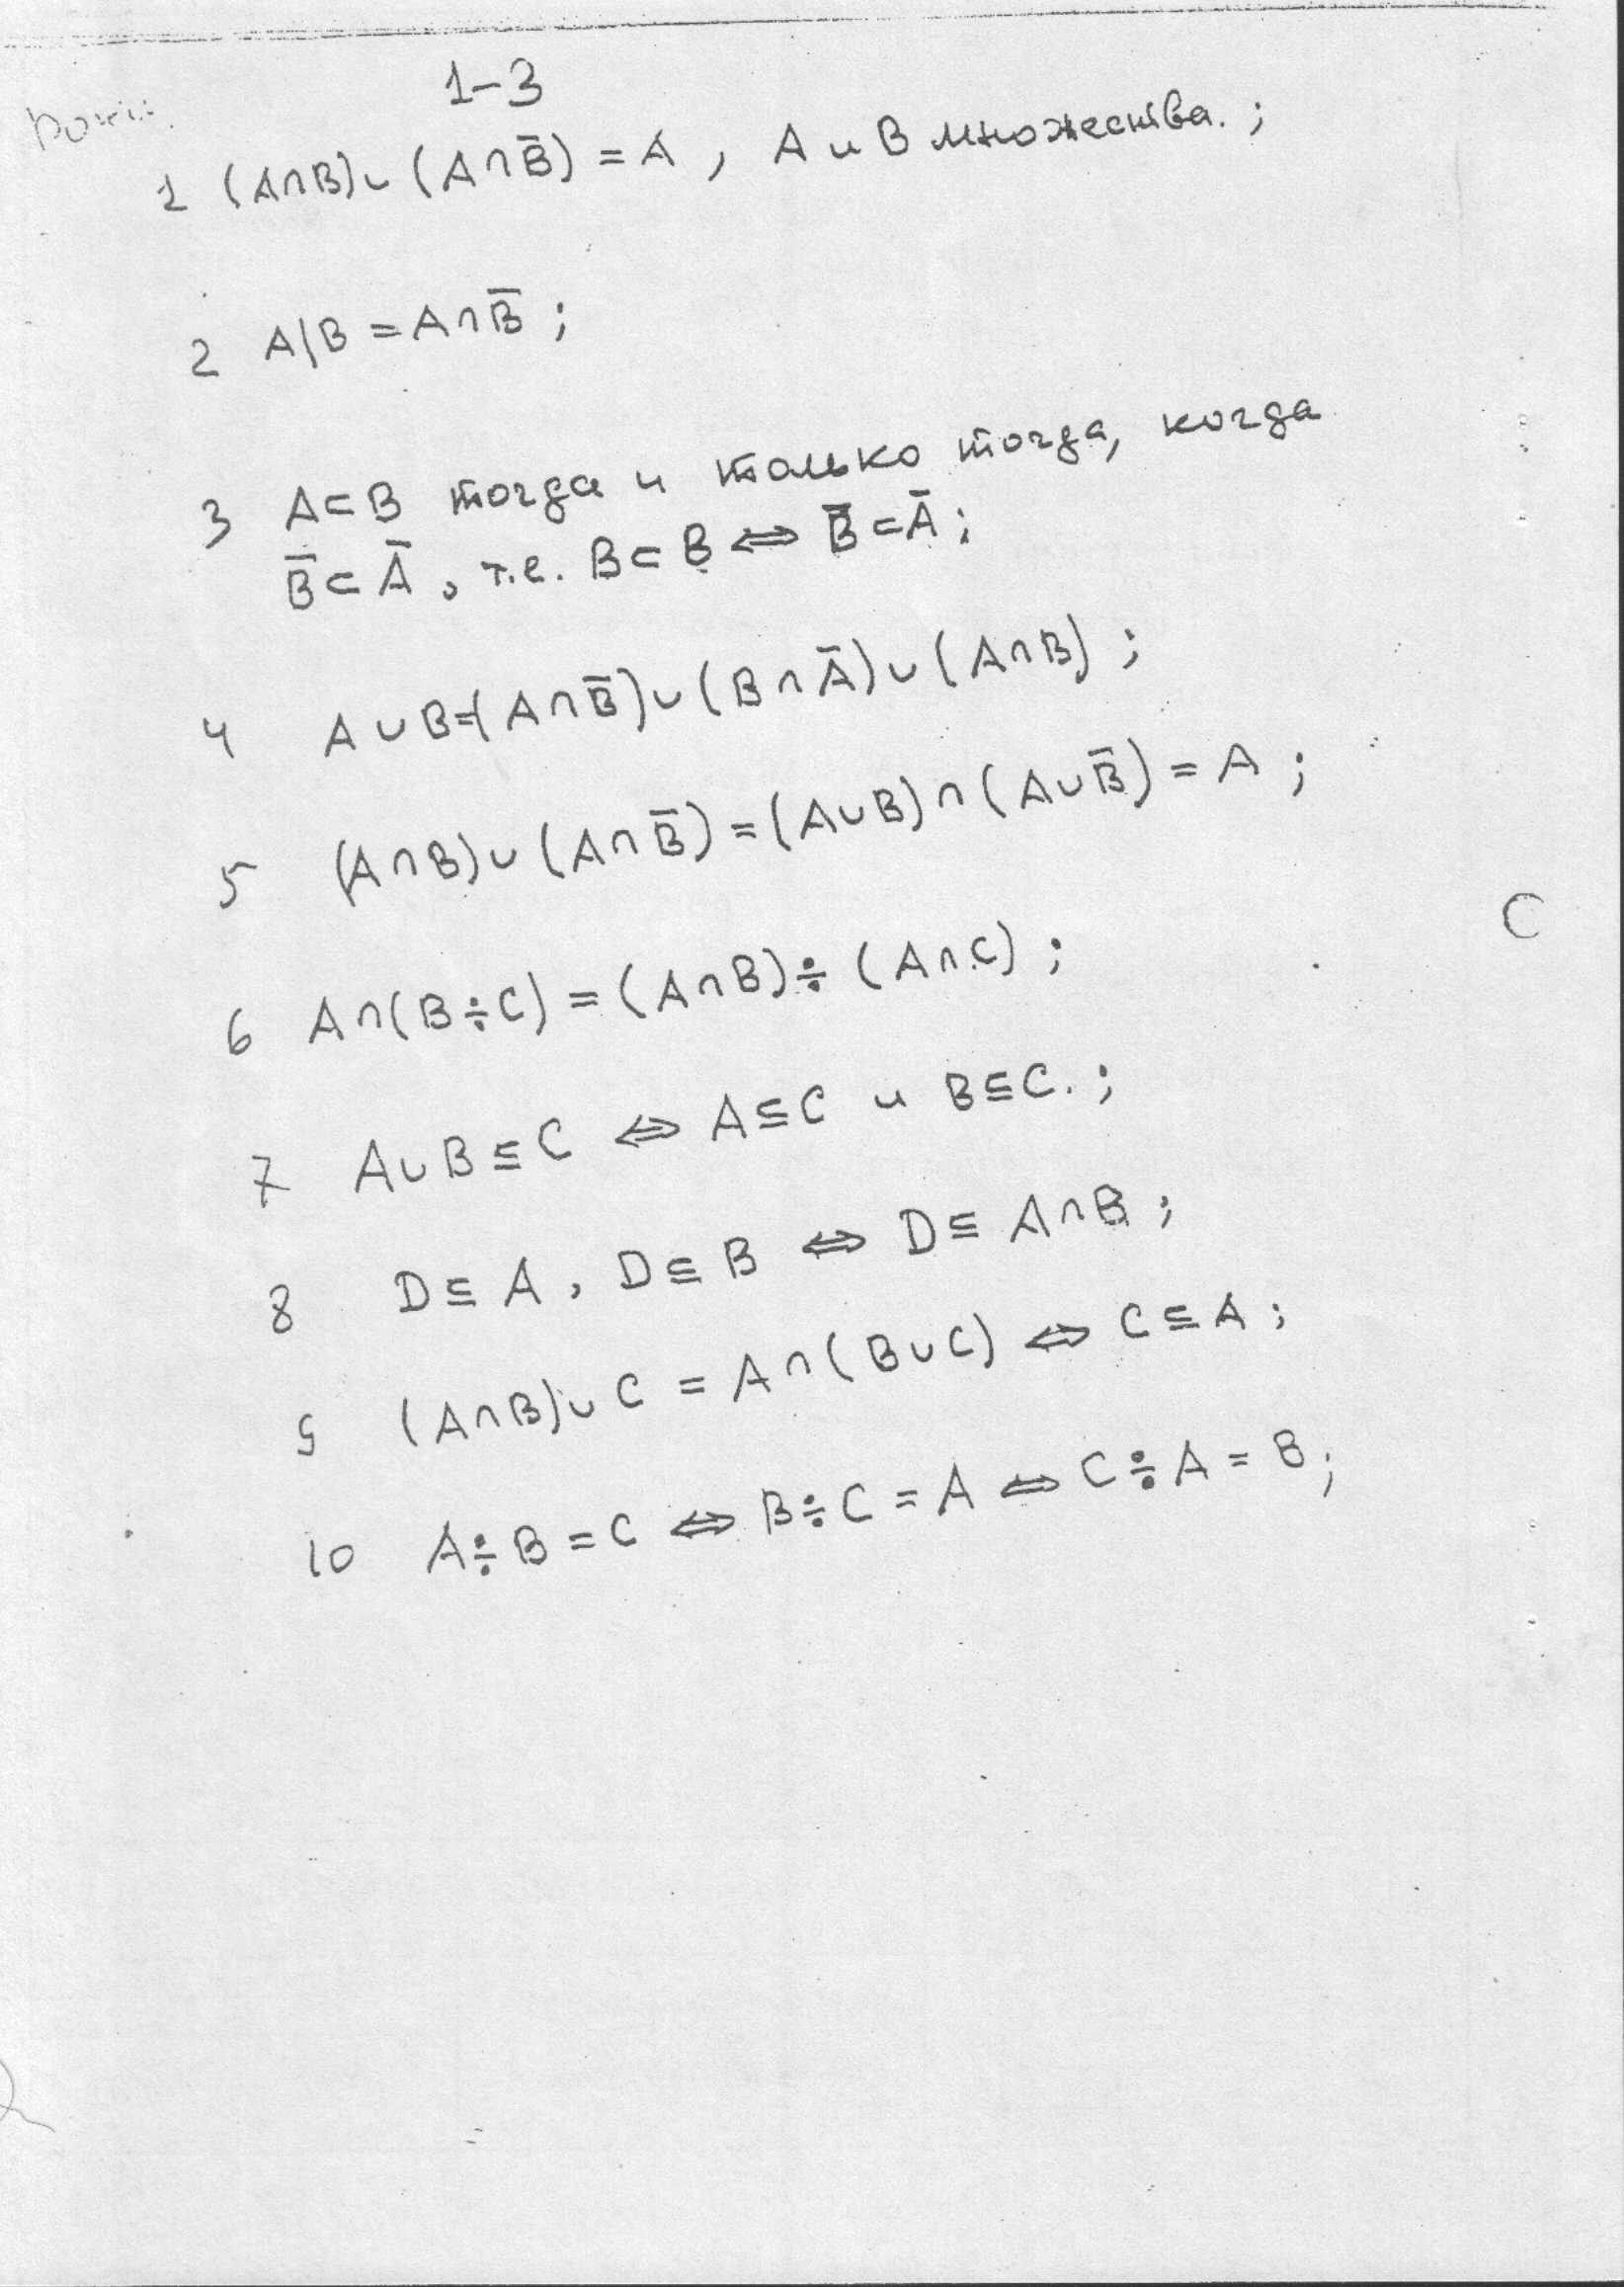 1-3
1 (A∩B)∪(A∩B̅) = A, A и B множества.;
2 A/B = A∩B̅;
3 A⊂B тогда и только тогда, когда
B̅⊂A̅, т.е. B⊂B⇔B̅⊂A̅;
4 A∪B=(A∩B̅)∪(B∩A̅)∪(A∩B);
5 (A∩B)∪(A∩B̅)=(A∪B)∩(A∪B̅)=A;
C
6 A∩(B÷C)=(A∩B)÷(A∩C);
7 A∪B⊆C ⇔ A⊆C и B⊆C.;
8 D⊆A, D⊆B ⇔ D⊆A∩B;
9 (A∩B)∪C = A∩(B∪C) ⇔ C⊆A;
10 A÷B=C ⇔ B÷C=A ⇔ C÷A=B;